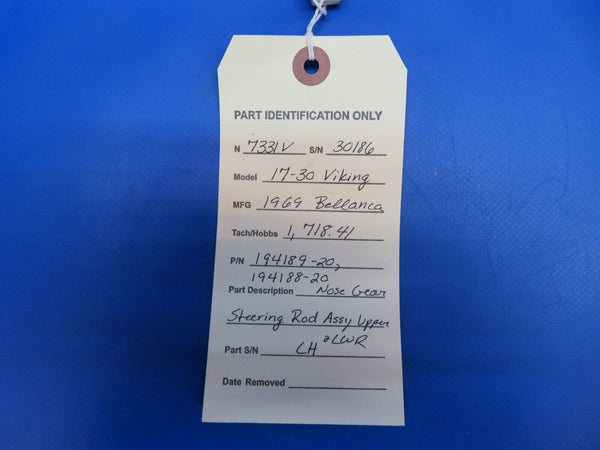 PART IDENTIFICATION ONLY
N 7331V S/N 30186
Model 17-30 Viking
MFG 1969 Bellanca
Tach/Hobbs 1,718.41
P/N 194189-20,
194188-20
Part Description Nose Gear
Steering Rod Assy Upper
& LWR
Part S/N LH
Date Removed